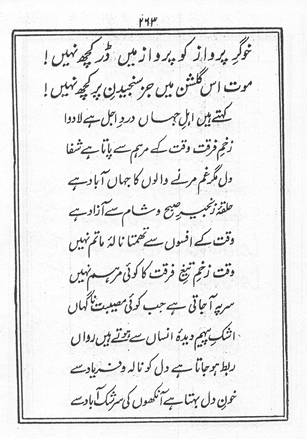 ۲۶۳
خوگرِ پرواز کو پرواز میں ڈر کچھ نہیں!
موت اس گلشن میں جز سنجیدنِ پر کچھ نہیں!
کہتے ہیں اہلِ جہاں دردِ اجل ہے لادوا
زخمِ فرقت وقت کے مرہم سے پاتا ہے شفا
دل مگر غم مرنے والوں کا جہاں آباد ہے
حلقۂ زنجیرِ صبح و شام سے آزاد ہے
وقت کے افسوں سے تھمتا نالۂ ماتم نہیں
وقت زخمِ تیغِ فرقت کا کوئی مرہم نہیں
سر پہ آجاتی ہے جب کوئی مصیبت ناگہاں
اشکِ پیہم دیدۂ انساں سے ہوتے ہیں رواں
ربط ہو جاتا ہے دل کو نالہ و فریاد سے
خونِ دل بہتا ہے آنکھوں کی سرشک آباد سے